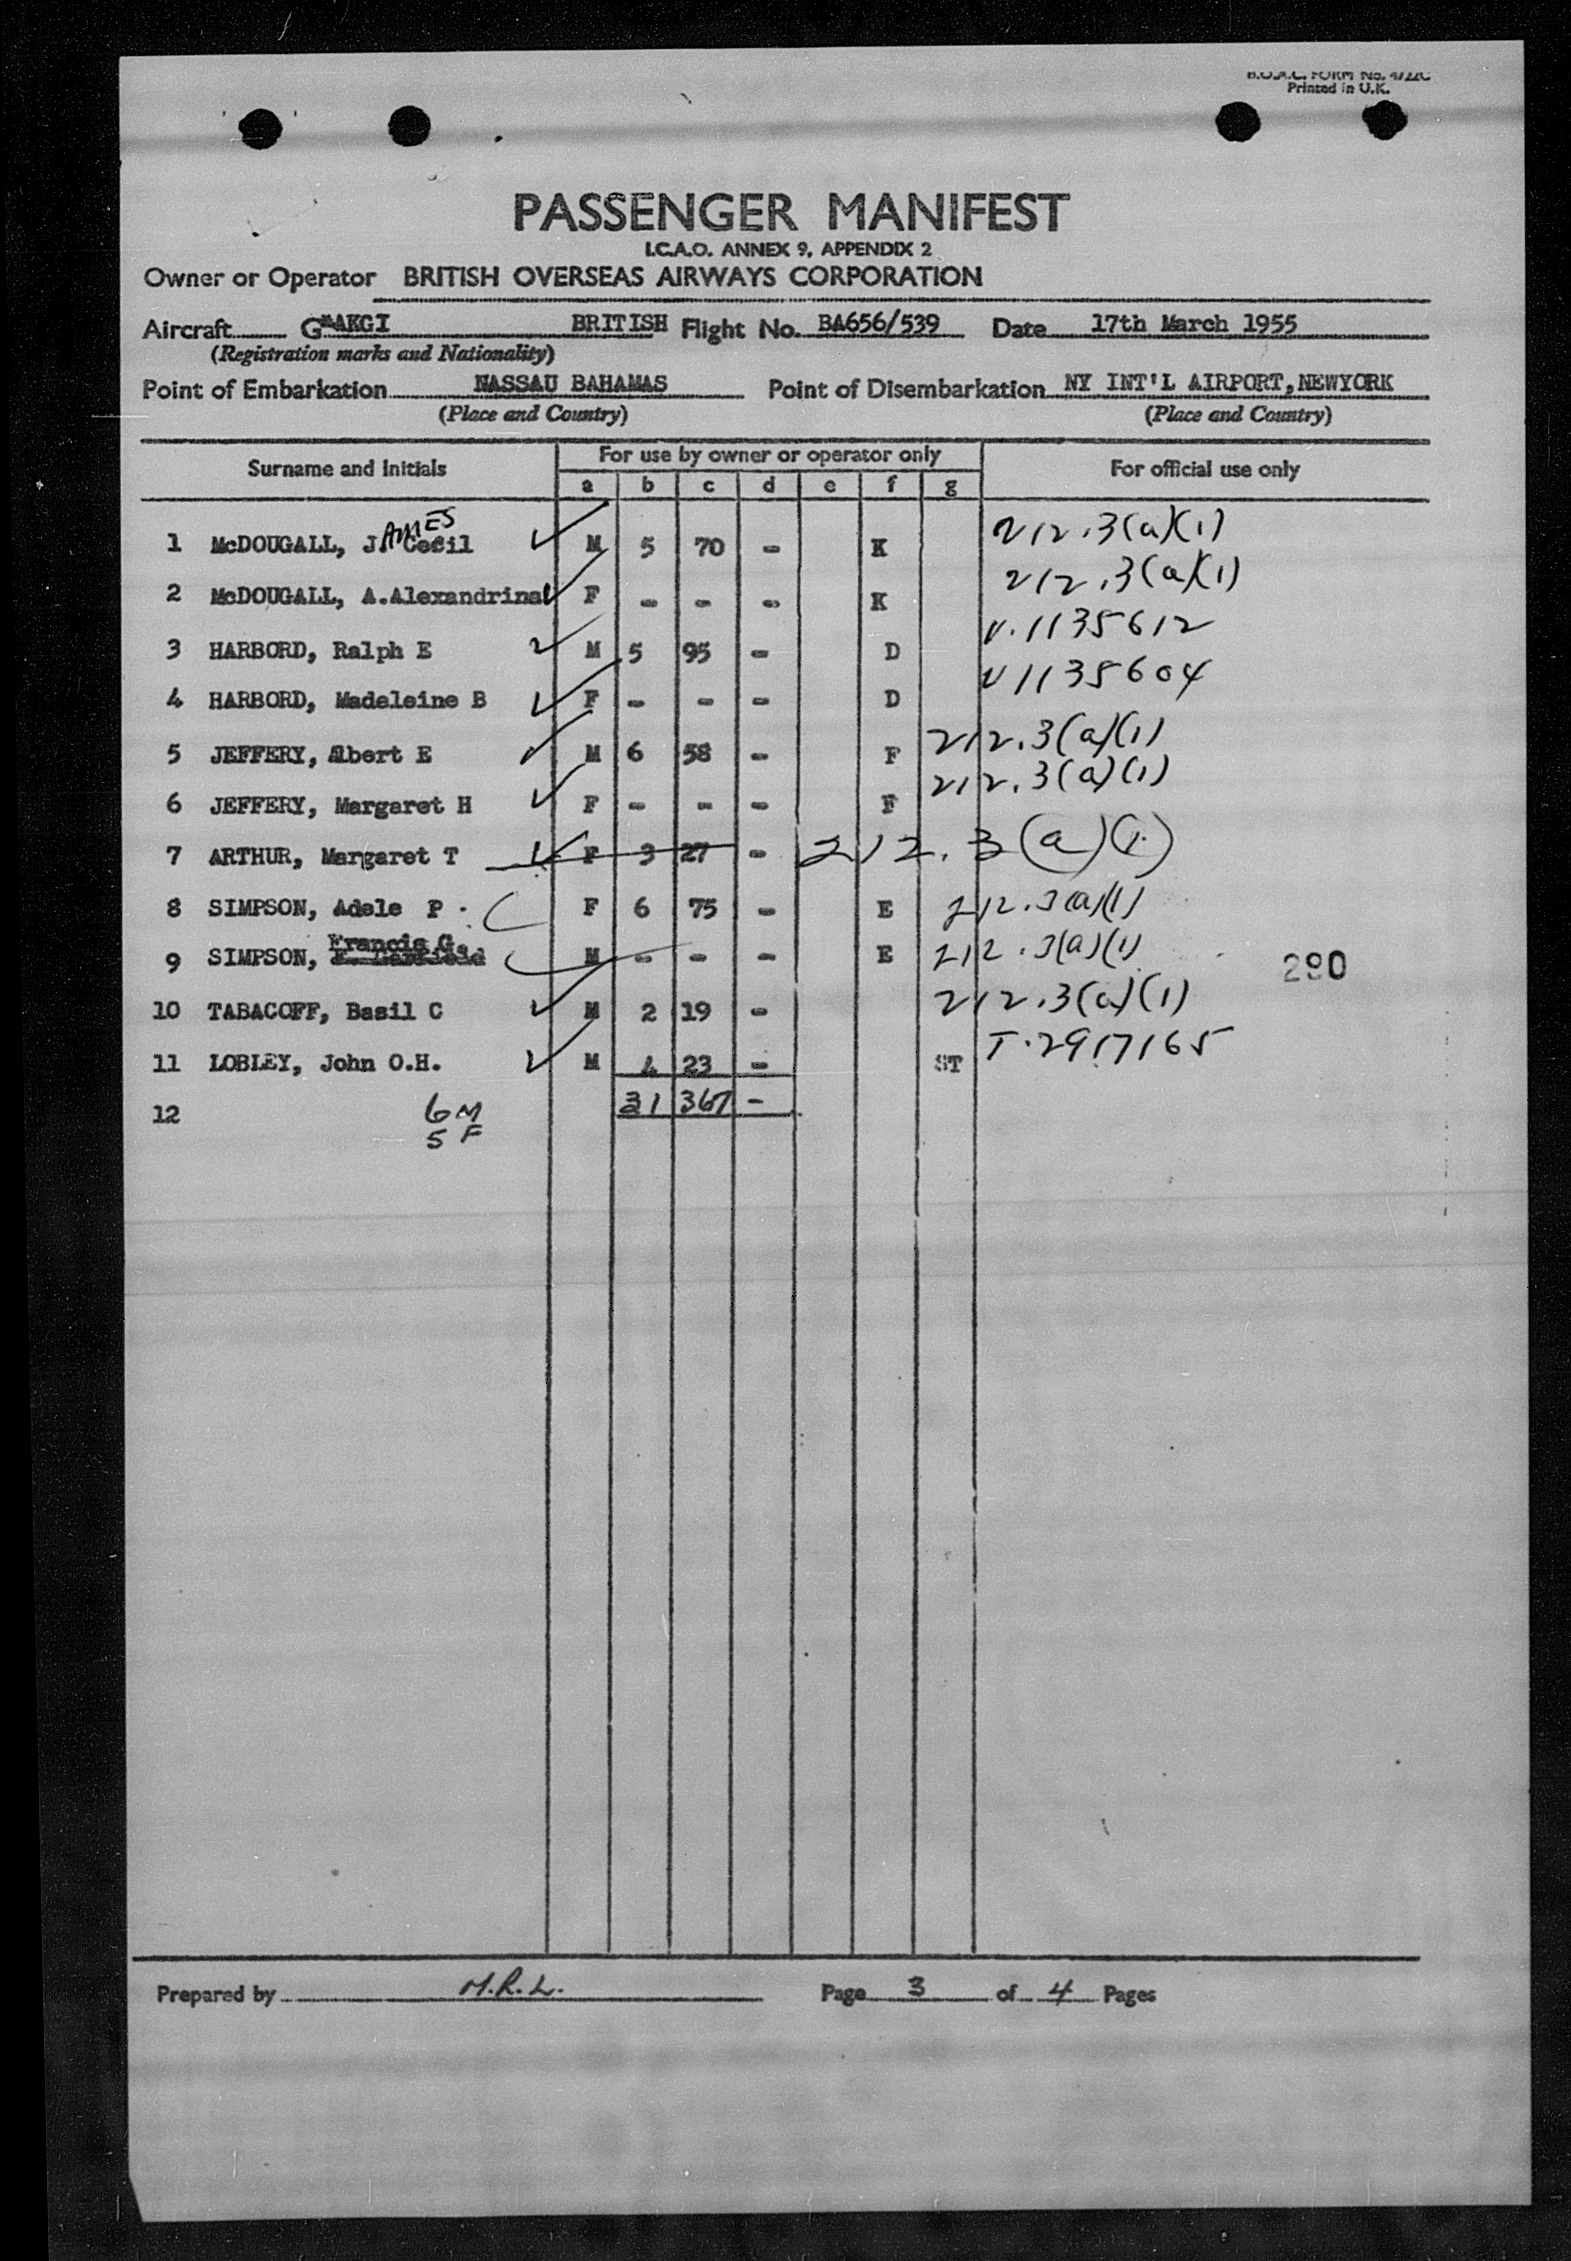 B.O.A.C. FORM No. 4722C
Printed in U.K.
PASSENGER MANIFEST
I.C.A.O. ANNEX 9, APPENDIX 2
Owner or Operator BRITISH OVERSEAS AIRWAYS CORPORATION
Aircraft G-AKGI BRITISH Flight No. BA656/539 Date 17th March 1955
(Registration marks and Nationality)
Point of Embarkation NASSAU BAHAMAS Point of Disembarkation NY INT'L AIRPORT, NEWYORK
(Place and Country) (Place and Country)
Surname and Initials For use by owner or operator only For official use only
a b c d e f g
1 McDOUGALL, JAMES Cecil M 5 70 - K 212.3(a)(1)
2 McDOUGALL, A.Alexandrina F - - - K 212.3(a)(1)
3 HARBORD, Ralph E M 5 95 - D V.1135612
4 HARBORD, Madeleine B F - - - D V1135604
5 JEFFERY, Albert E M 6 58 - F 212.3(a)(1)
6 JEFFERY, Margaret H F - - - F 212.3(a)(1)
7 ARTHUR, Margaret T F 3 27 - 212.3(a)(1)
8 SIMPSON, Adele P. F 6 75 - E 212.3(a)(1)
9 SIMPSON, Francis G. M - - - E 212.3(a)(1)
290
10 TABACOFF, Basil C M 2 19 - 212.3(a)(1)
11 LOBLEY, John O.H. M 4 23 - ST T.2917165
12 6M 31 367 -
5 F
Prepared by M.R.L. Page 3 of 4 Pages